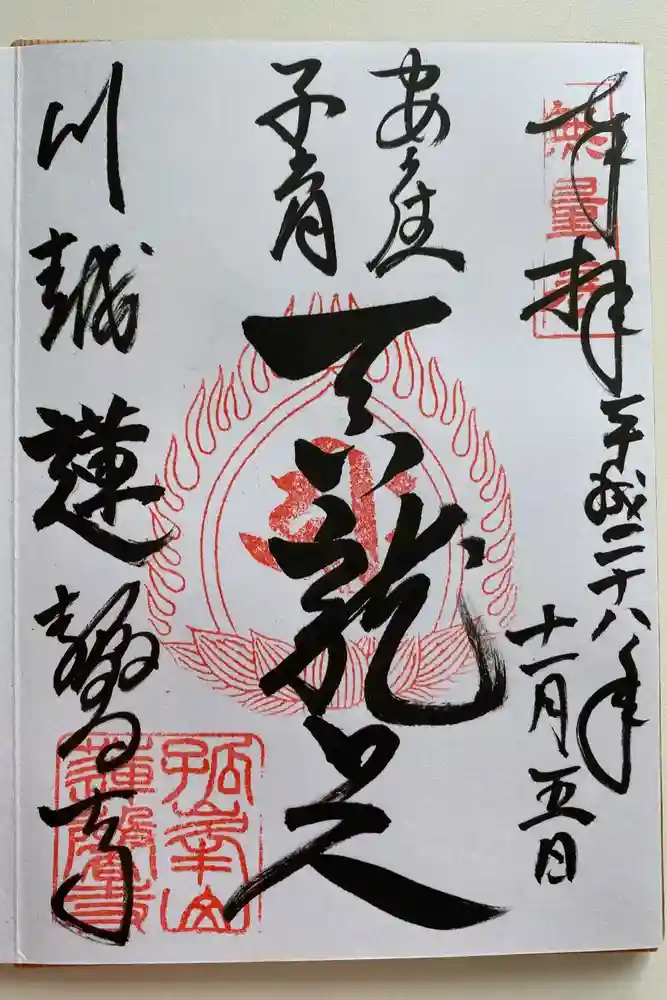 奉拝 平成二十八年
十一月五日
無量壽
安産
子育
呑龍上人
川越 蓮馨寺
孤峯山
蓮馨寺